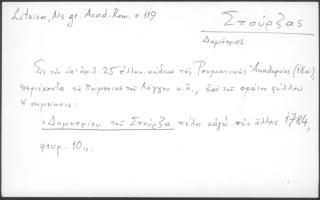 Litzica, Ms gr. Acad. Rom. σ. 119
Στούρζας
Δημήτριος
Εἰς τὸν ὑπ' ἀριθ. 25 ἑλλην. κώδικα τῆς Ρουμανικῆς Ἀκαδημίας (18ου αἰ.),
περιέχοντα τὰ Ποιμενικὰ τοῦ Λόγγου κ.ἄ., ἐπὶ τοῦ πρώτου φύλλου
ἡ σημείωσις:
«Δημητρίου τοῦ Στούρζα πέλω κἀγὼ σὺν ἄλλοις 1784,
φευρ. 10».